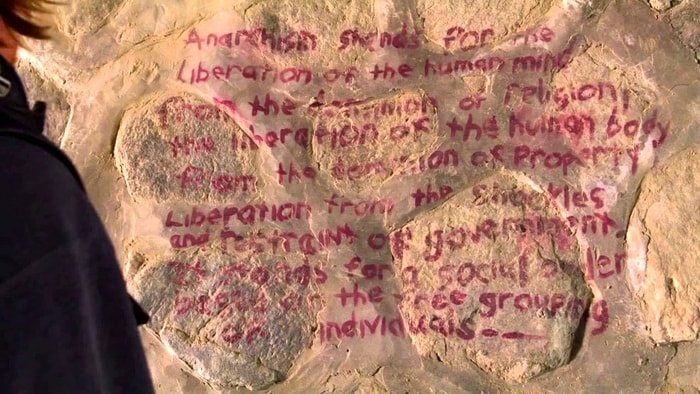 Anarchism stands for the
liberation of the human mind
from the dominion of religion,
the liberation of the human body
from the dominion of property
Liberation from the shackles
and restraint of government.
It stands for a social order
based on the free grouping
of individuals